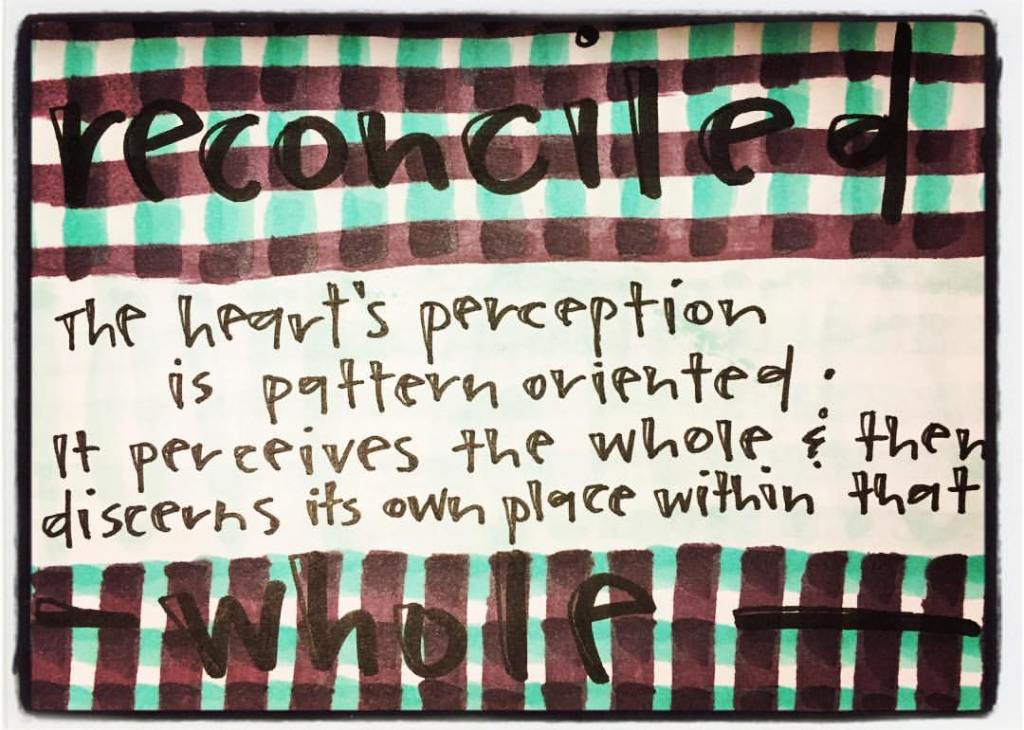 reconciled
The heart's perception
is pattern oriented.
It perceives the whole & then
discerns its own place within that
- whole -